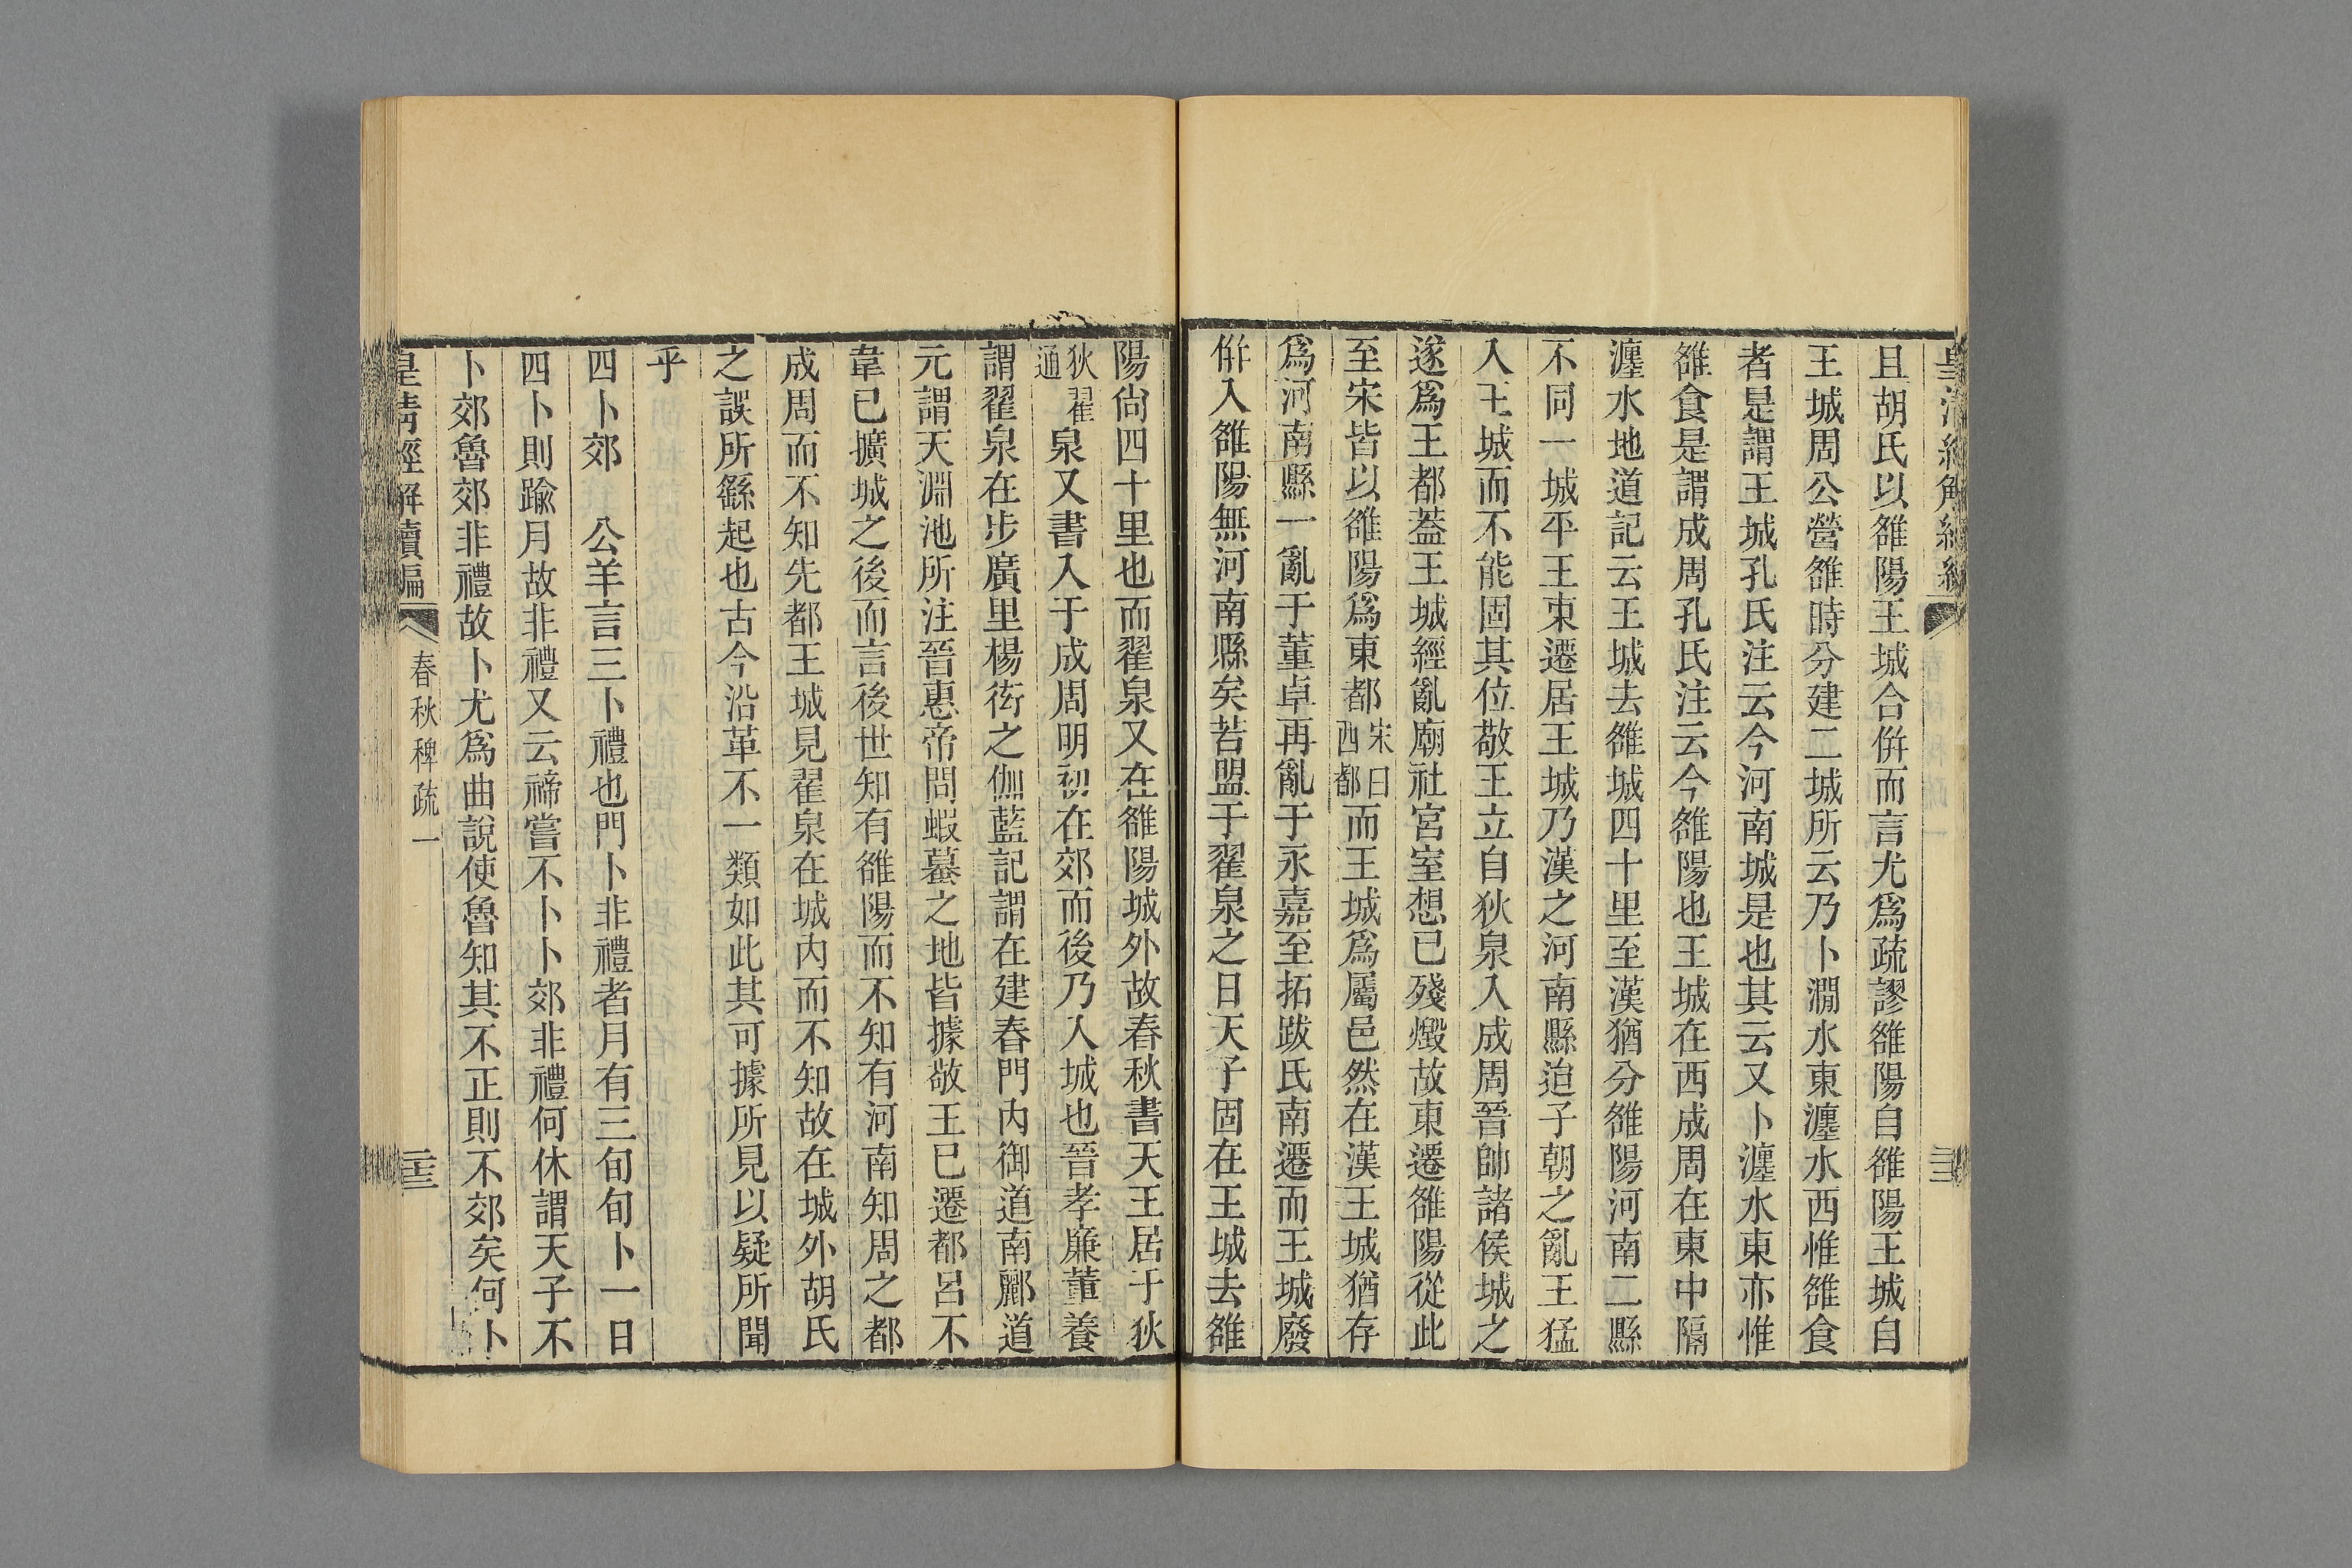 且胡氏以雒陽王城合倂而言尤爲疏謬雒陽自雒陽王城自
王城周公營雒時分建二城所云乃卜澗水東瀍水西惟雒食
者是謂王城孔氏注云今河南城是也其云又卜瀍水東亦惟
雒食是謂成周孔氏注云今雒陽也王城在西成周在東中隔
瀍水地道記云王城去雒城四十里至漢猶分雒陽河南二縣
不同一城平王東遷居王城乃漢之河南縣迫子朝之亂王猛
入王城而不能固其位敬王立自狄泉入成周晉帥諸侯城之
遂爲王都蓋王城經亂廟社宮室想已殘燬故東遷雒陽從此
至宋皆以雒陽爲東都宋曰西都而王城爲屬邑然在漢王城猶存
爲河南縣一亂于董卓再亂于永嘉至拓跋氏南遷而王城廢
倂入雒陽無河南縣矣若盟于翟泉之日天子固在王城去雒
陽尙四十里也而翟泉又在雒陽城外故春秋書天王居于狄
狄翟通泉又書入于成周明初在郊而後乃入城也晉孝廉董養
謂翟泉在步廣里楊衒之伽藍記謂在建春門内御道南酈道
元謂天淵池所注晉惠帝問蝦蟇之地皆據敬王已遷都呂不
韋已擴城之後而言後世知有雒陽而不知有河南知周之都
成周而不知先都王城見翟泉在城内而不知故在城外胡氏
之誤所繇起也古今沿革不一類如此其可據所見以疑所聞
乎
四卜郊　公羊言三卜禮也門卜非禮者月有三旬旬卜一日
四卜則踰月故非禮又云禘嘗不卜卜郊非禮何休謂天子不
卜郊魯郊非禮故卜尤爲曲說使魯知其不正則不郊矣何卜
皇清經解續編　春秋稗疏一　二十三